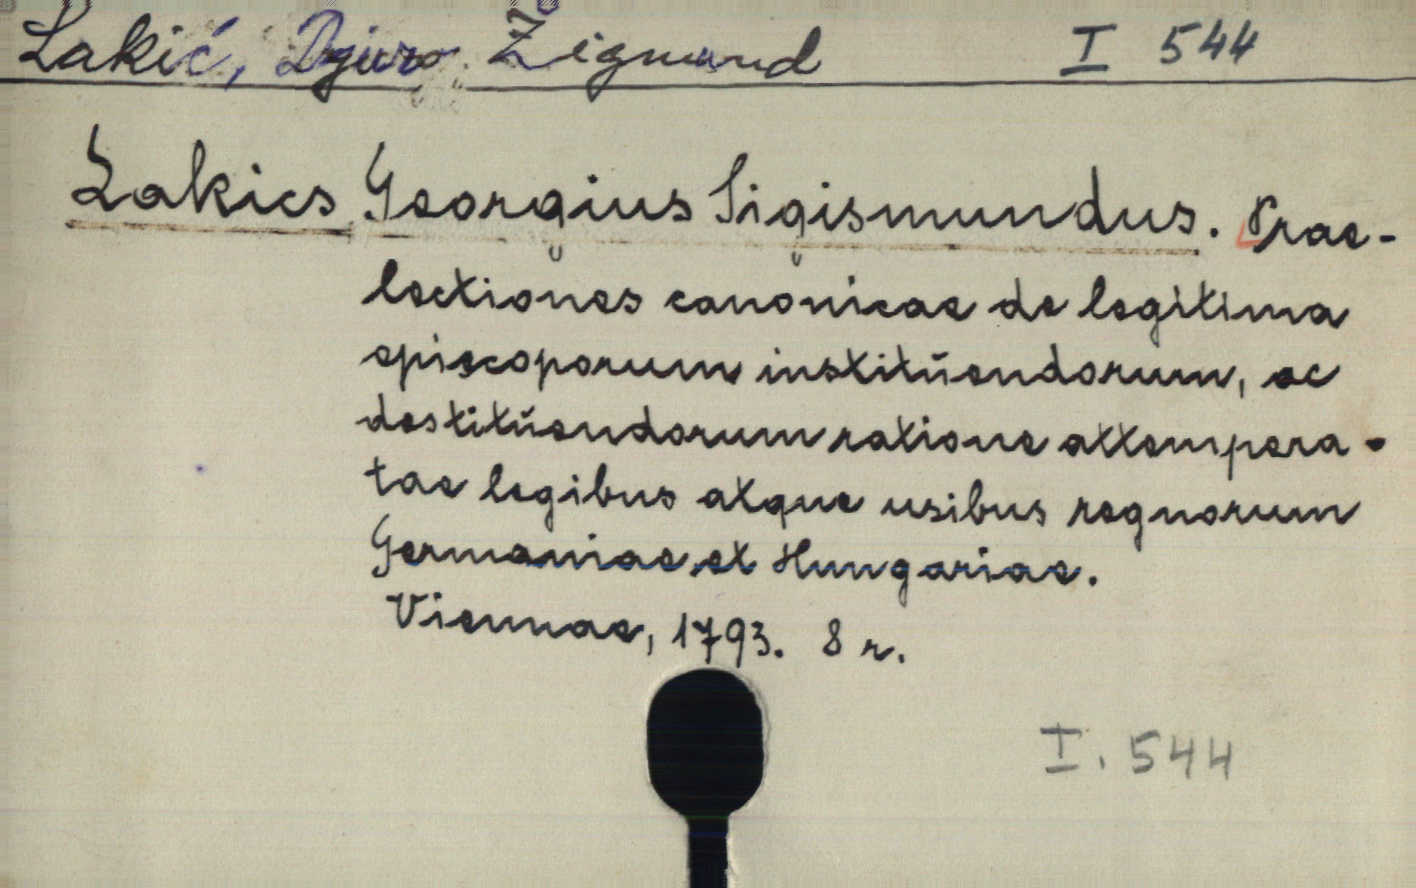 Lakić, Djuro Žigmund I 544
Lakics Georgius Sigismundus. Prae-
lectiones canonicae de legitima
episcoporum instituendorum, ac
destituendorum ratione attempera-
tae legibus atque usibus regnorum
Germaniae et Hungariae.
Viennae, 1793. 8 r.
I. 544